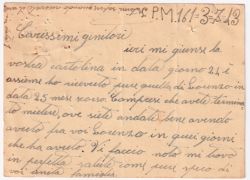 P.M. 161-3-7-43
Carissimi genitori
ieri mi giunse la
vostra cartolina in data giorno 24 e
assieme ho ricevuto pure quella di Lorenzo in
data 25 mese scorso. Compresi che avete
to mietere, ove siete andati bene avendo
avuto fra voi Lorenzo in quei giorni
che ha avuto. Vi faccio noto mi trovo
in perfetta salute come pure spero di
voi unita famiglia